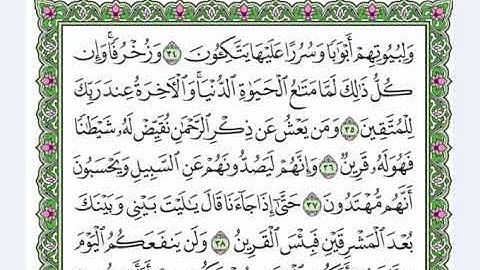 وَلِبُيُوتِهِمْ أَبْوَٰبًا وَسُرُرًا عَلَيْهَا يَتَّكِـُٔونَ ٣٤ وَزُخْرُفًا وَإِن
كُلُّ ذَٰلِكَ لَمَّا مَتَـٰعُ ٱلْحَيَوٰةِ ٱلدُّنْيَا وَٱلْـَٔاخِرَةُ عِندَ رَبِّكَ
لِلْمُتَّقِينَ ٣٥ وَمَن يَعْشُ عَن ذِكْرِ ٱلرَّحْمَـٰنِ نُقَيِّضْ لَهُۥ شَيْطَـٰنًا
فَهُوَ لَهُۥ قَرِينٌ ٣٦ وَإِنَّهُمْ لَيَصُدُّونَهُمْ عَنِ ٱلسَّبِيلِ وَيَحْسَبُونَ
أَنَّهُم مُّهْتَدُونَ ٣٧ حَتَّىٰٓ إِذَا جَآءَنَا قَالَ يَـٰلَيْتَ بَيْنِى وَبَيْنَكَ
بُعْدَ ٱلْمَشْرِقَيْنِ فَبِئْسَ ٱلْقَرِينُ ٣٨ وَلَن يَنفَعَكُمُ ٱلْيَوْمَ